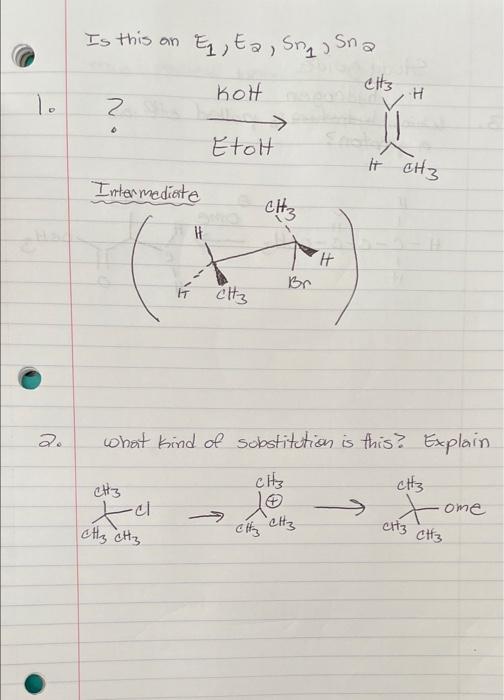 Is this an E1, E2, Sn1, Sn2
1. ? KOH
EtOH
CH3 H
H CH3
Intermediate
CH3
H
H
H CH3 Br
2. what kind of sobstitution is this? Explain
CH3 CH3 CH3
Cl ⊕ ome
CH3 CH3 CH3 CH3 CH3 CH3